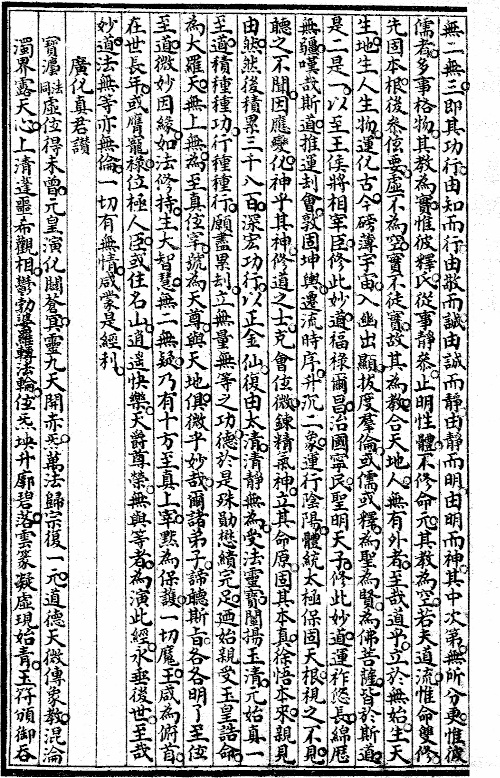 無二無三即其功行由知而行由敬而誠由誠而靜由靜而明由明而神其中次第無所分更惟彼
儒者多事格物其教為實惟彼釋氏從事靜參止明性體不修命元其教為空若夫道流惟命雙修
先固本根後參佐要虛不為空實不徒實故其為教合天地人無有外者至哉道乎立於無始生天
生地生人生物運化古今磅薄宇宙入幽出顯拔度羣倫或儒或釋為聖為賢為佛菩薩皆於斯道
是二是一以至王侯將相宰臣修此妙道福祿爾昌治國寧民聖明天子修此妙道運祚悠長綿歷
無疆嘆哉斯道推運劫會敦固坤輿遷流時序升沉二象運行陰陽體統太極保固天根視之不見
聽之不聞因應變化神乎其神修道之士克會佐微鍊精氣神立其命原固其本真徐悟本來親見
由然然後積累三千八百深宏功行以正金仙復由太清清靜無為受法靈寶闡揚玉清元始真一
至道積種種功行種種行願盡累劫立無量無等之功德於是殊勛懋績完足迺始親受玉皇誥命
為大羅天無上無為至真位宰號為天尊與天地俱微乎妙哉爾諸弟子諦聽斯旨各各明了至位
至道微妙因緣如法修持生大智慧無二無疑乃有十方至真上宰默為保護一切魔王咸為俯首
在世長年或膺寵祿位極人臣或住名山逍遙快樂天爵尊榮無與等者為演此經永垂後世至哉
妙道法無等亦無倫一切有無情咸蒙是經利
廣化真君讚
寶濅同法虛位得未曾元皇演化闢蒼冥靈九天開亦炁萬法歸宗復一元道德天微傳象教混淪
濁界靈天心上清達噩希觀相鬱勃婆羅轉法輪位炁坱升廓碧落雲篆凝虛現始青玉符頒御吞